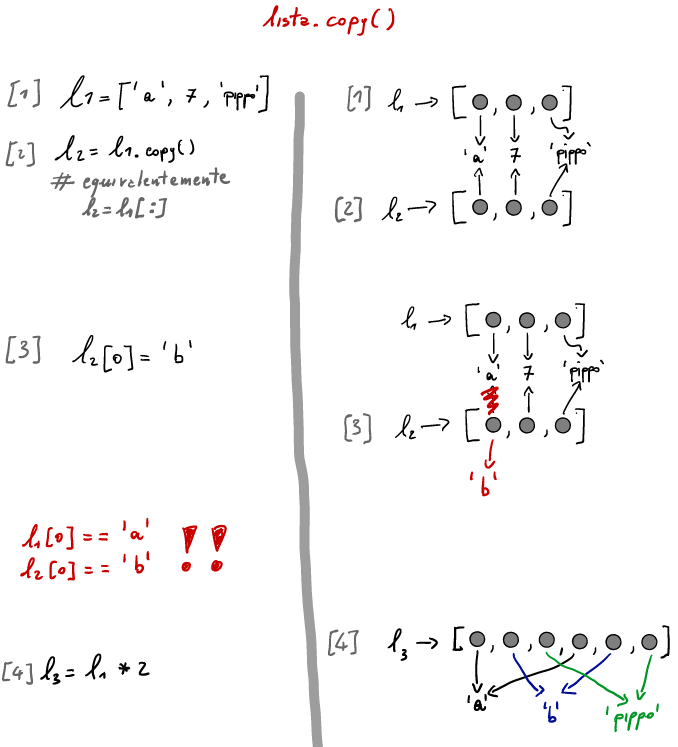 lista.copy()
[1] l1 = ['a', 7, 'pippo']
[2] l2 = l1.copy()
# equivalentemente
l2 = l1[:]
[3] l2[0] = 'b'
l1[0] == 'a' !!
l2[0] == 'b'
[4] l3 = l1 * 2
[1] l1 → [ , , ]
'a' 7 'pippo'
[2] l2 → [ , , ]
l1 → [ , , ]
'a' 7 'pippo'
[3] l2 → [ , , ]
'b'
[4] l3 → [ , , , , , ]
'a' 'b' 'pippo'